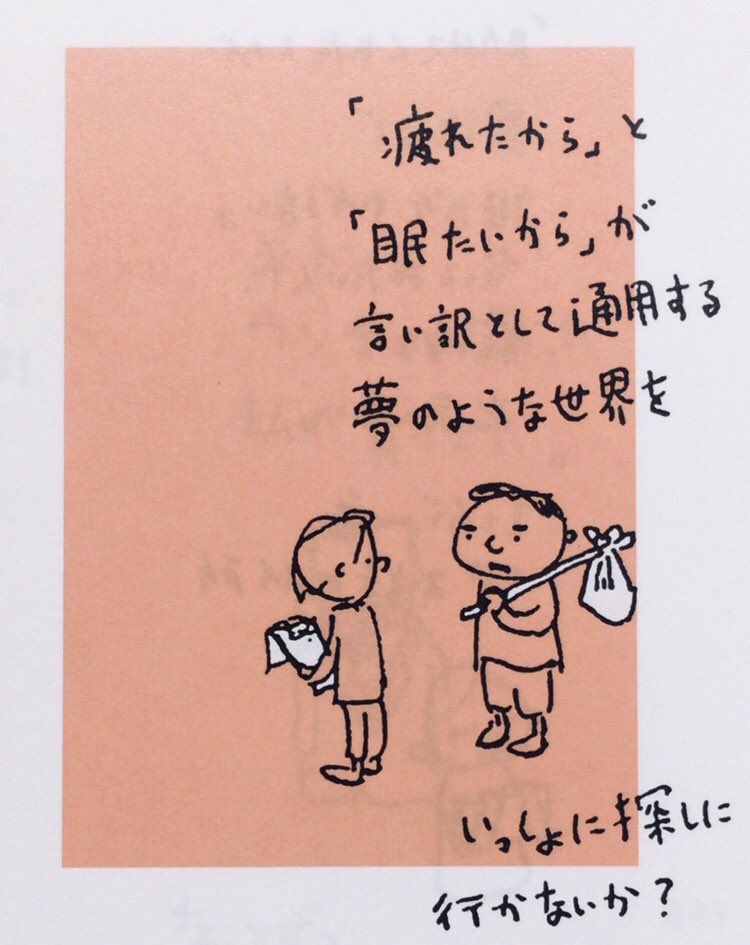 「疲れたから」と
「眠たいから」が
言い訳として通用する
夢のような世界を
いっしょに探しに
行かないか？